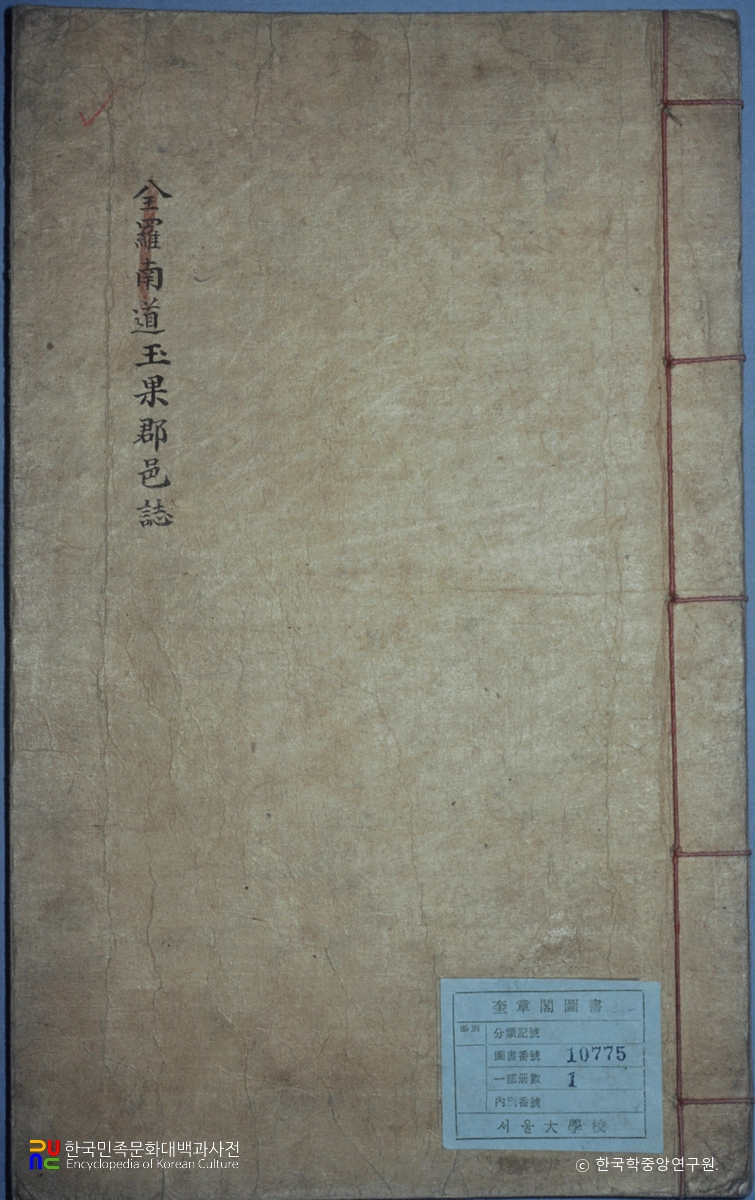 全羅南道玉果郡邑誌
奎章閣圖書
分類記號
圖書番號 10775
一部册數 1
內別番號
서울大學校
한국민족문화대백과사전
Encyclopedia of Korean Culture
© 한국학중앙연구원.